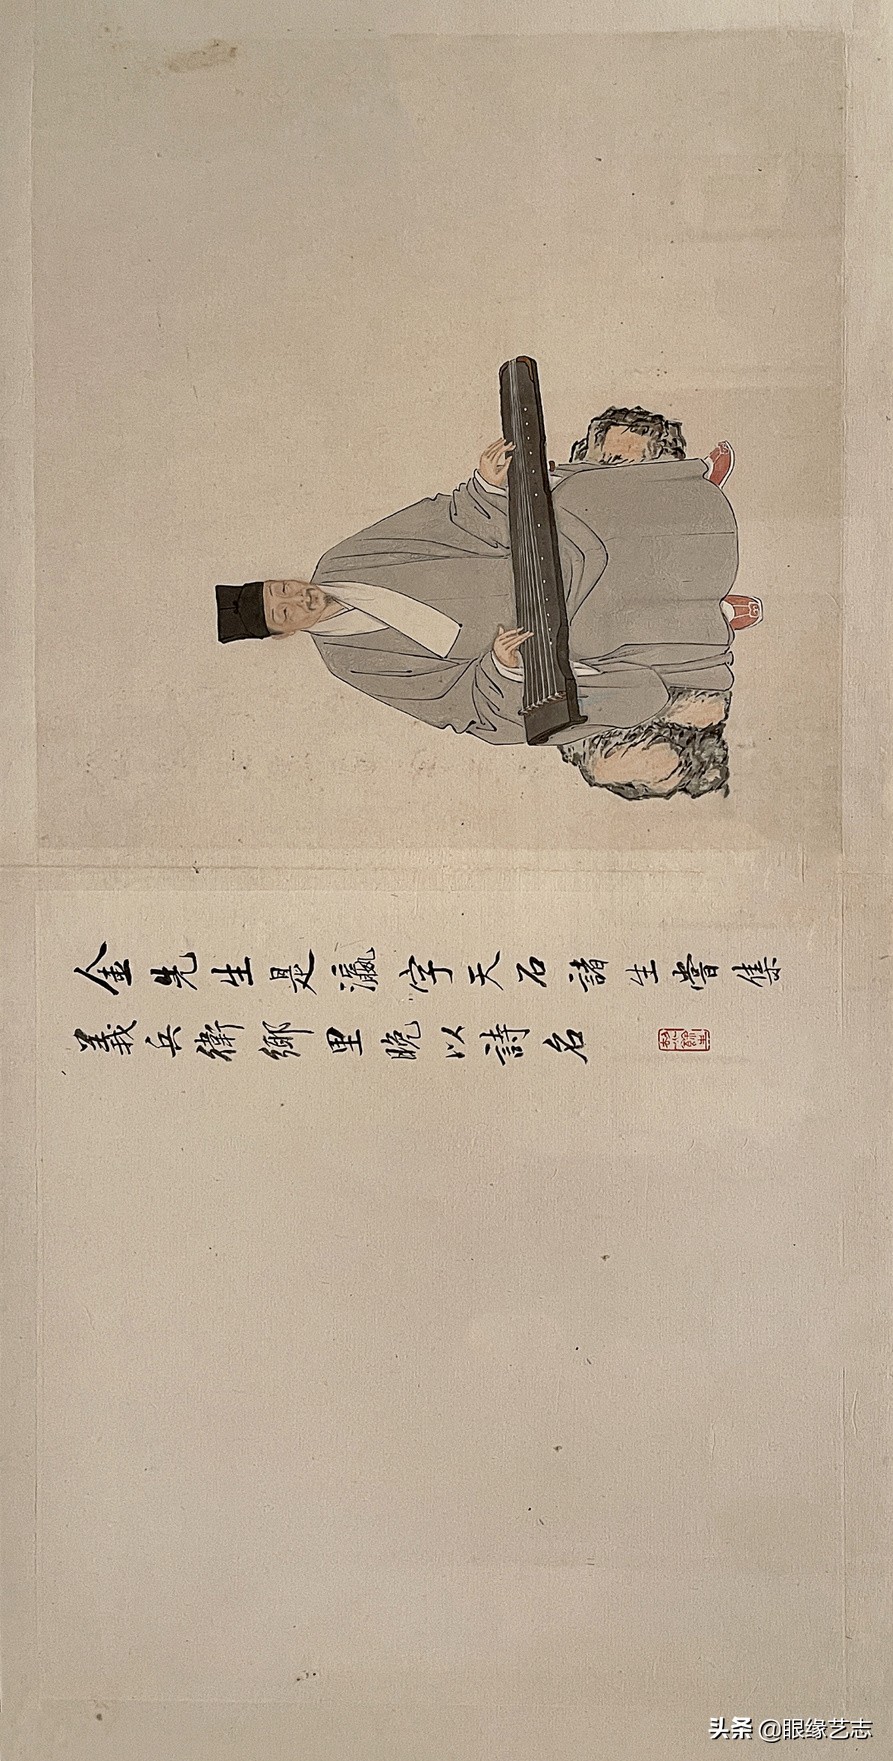 金先生是瀛字天石諸生嘗集
義兵衛鄉里晚以詩名
头条 @眼缘艺志